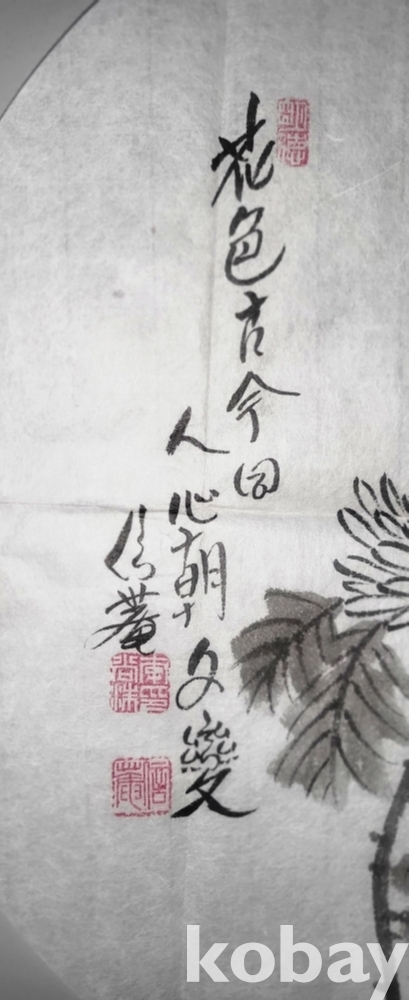 花色古今同
人心朝夕變
信菴
kobay